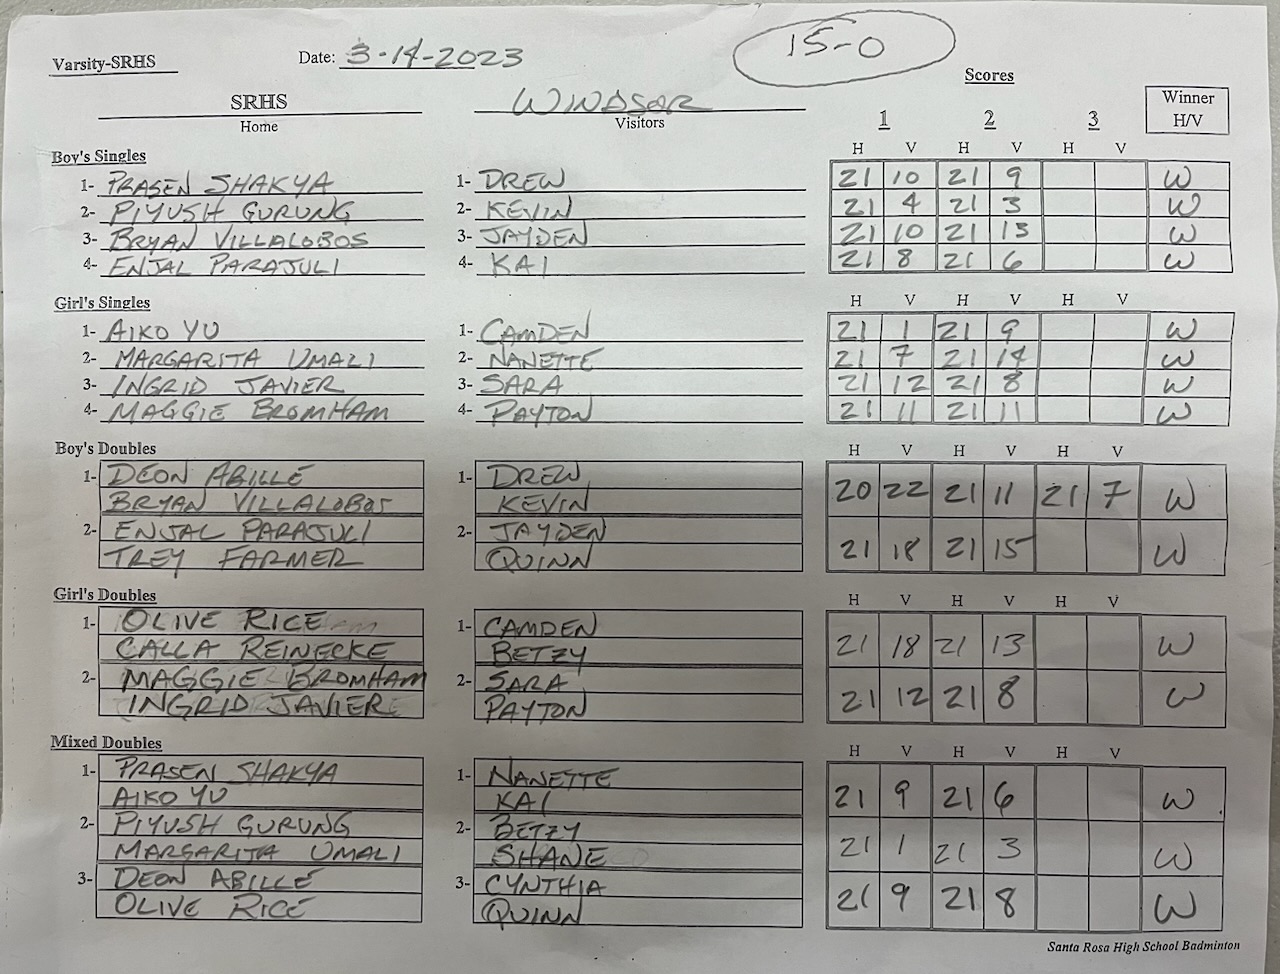 Varsity-SRHS Date: 3-14-2023 15-0
Scores
SRHS WINDSOR Winner
Home Visitors 1 2 3 H/V
Boy's Singles H V H V H V
1- PRASEN SHAKYA 1- DREW 21 10 21 9 W
2- PIYUSH GURUNG 2- KEVIN 21 4 21 3 W
3- BRYAN VILLALOBOS 3- JAYDEN 21 10 21 13 W
4- ENJAL PARAJULI 4- KAI 21 8 21 6 W
Girl's Singles H V H V H V
1- AIKO YU 1- CAMDEN 21 1 21 9 W
2- MARGARITA UMALI 2- NANETTE 21 7 21 14 W
3- INGRID JAVIER 3- SARA 21 12 21 8 W
4- MAGGIE BROMHAM 4- PAYTON 21 11 21 11 W
Boy's Doubles H V H V H V
1- DEON ABILLE 1- DREW 20 22 21 11 21 7 W
BRYAN VILLALOBOS KEVIN
2- ENJAL PARAJULI 2- JAYDEN 21 18 21 15 W
TREY FARMER QUINN
Girl's Doubles H V H V H V
1- OLIVE RICE 1- CAMDEN 21 18 21 13 W
CALLA REINECKE BETZY
2- MAGGIE BROMHAM 2- SARA 21 12 21 8 W
INGRID JAVIER PAYTON
Mixed Doubles H V H V H V
1- PRASEN SHAKYA 1- NANETTE 21 9 21 6 W
AIKO YU KAI
2- PIYUSH GURUNG 2- BETZY 21 1 21 3 W
MARGARITA UMALI SHANE
3- DEON ABILLE 3- CYNTHIA 21 9 21 8 W
OLIVE RICE QUINN
Santa Rosa High School Badminton